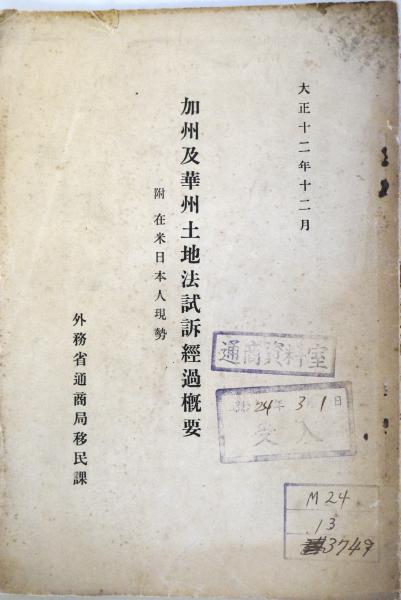 大正十二年十二月
加州及華州土地法試訴經過概要
附 在米日本人現勢
外務省通商局移民課
通商資料室
24年 3 1日
受入
M24
13
3749